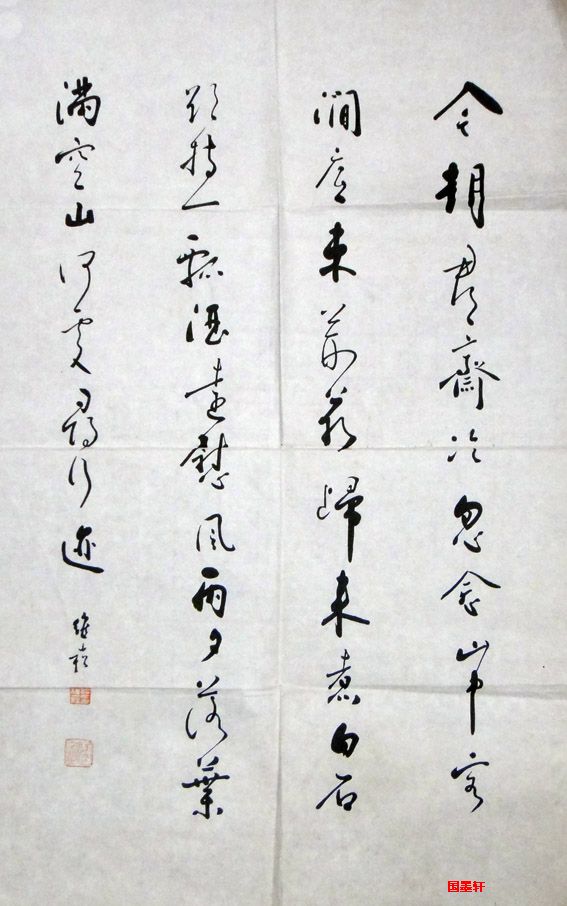 今朝郡齋冷忽念山中客
澗底束荆薪歸来煮白石
欲持一瓢酒遠慰風雨夕落葉
滿空山何處尋行迹
維崧
国墨轩